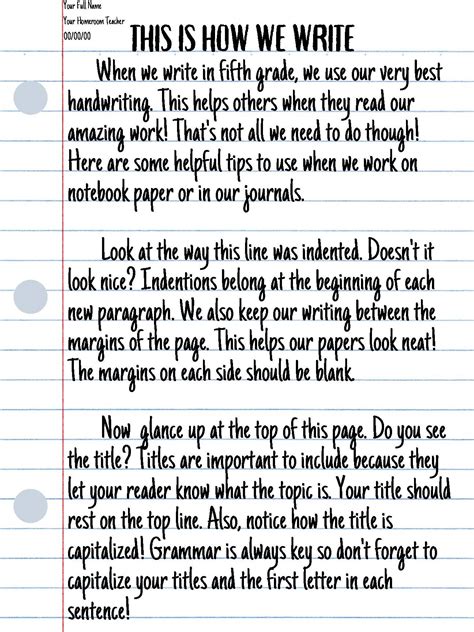 Your Full Name
Your Homeroom Teacher
00/00/00
THIS IS HOW WE WRITE
When we write in fifth grade, we use our very best
handwriting. This helps others when they read our
amazing work! That's not all we need to do though!
Here are some helpful tips to use when we work on
notebook paper or in our journals.
Look at the way this line was indented. Doesn't it
look nice? Indentions belong at the beginning of each
new paragraph. We also keep our writing between the
margins of the page. This helps our papers look neat!
The margins on each side should be blank.
Now glance up at the top of this page. Do you see
the title? Titles are important to include because they
let your reader know what the topic is. Your title should
rest on the top line. Also, notice how the title is
capitalized! Grammar is always key so don't forget to
capitalize your titles and the first letter in each
sentence!